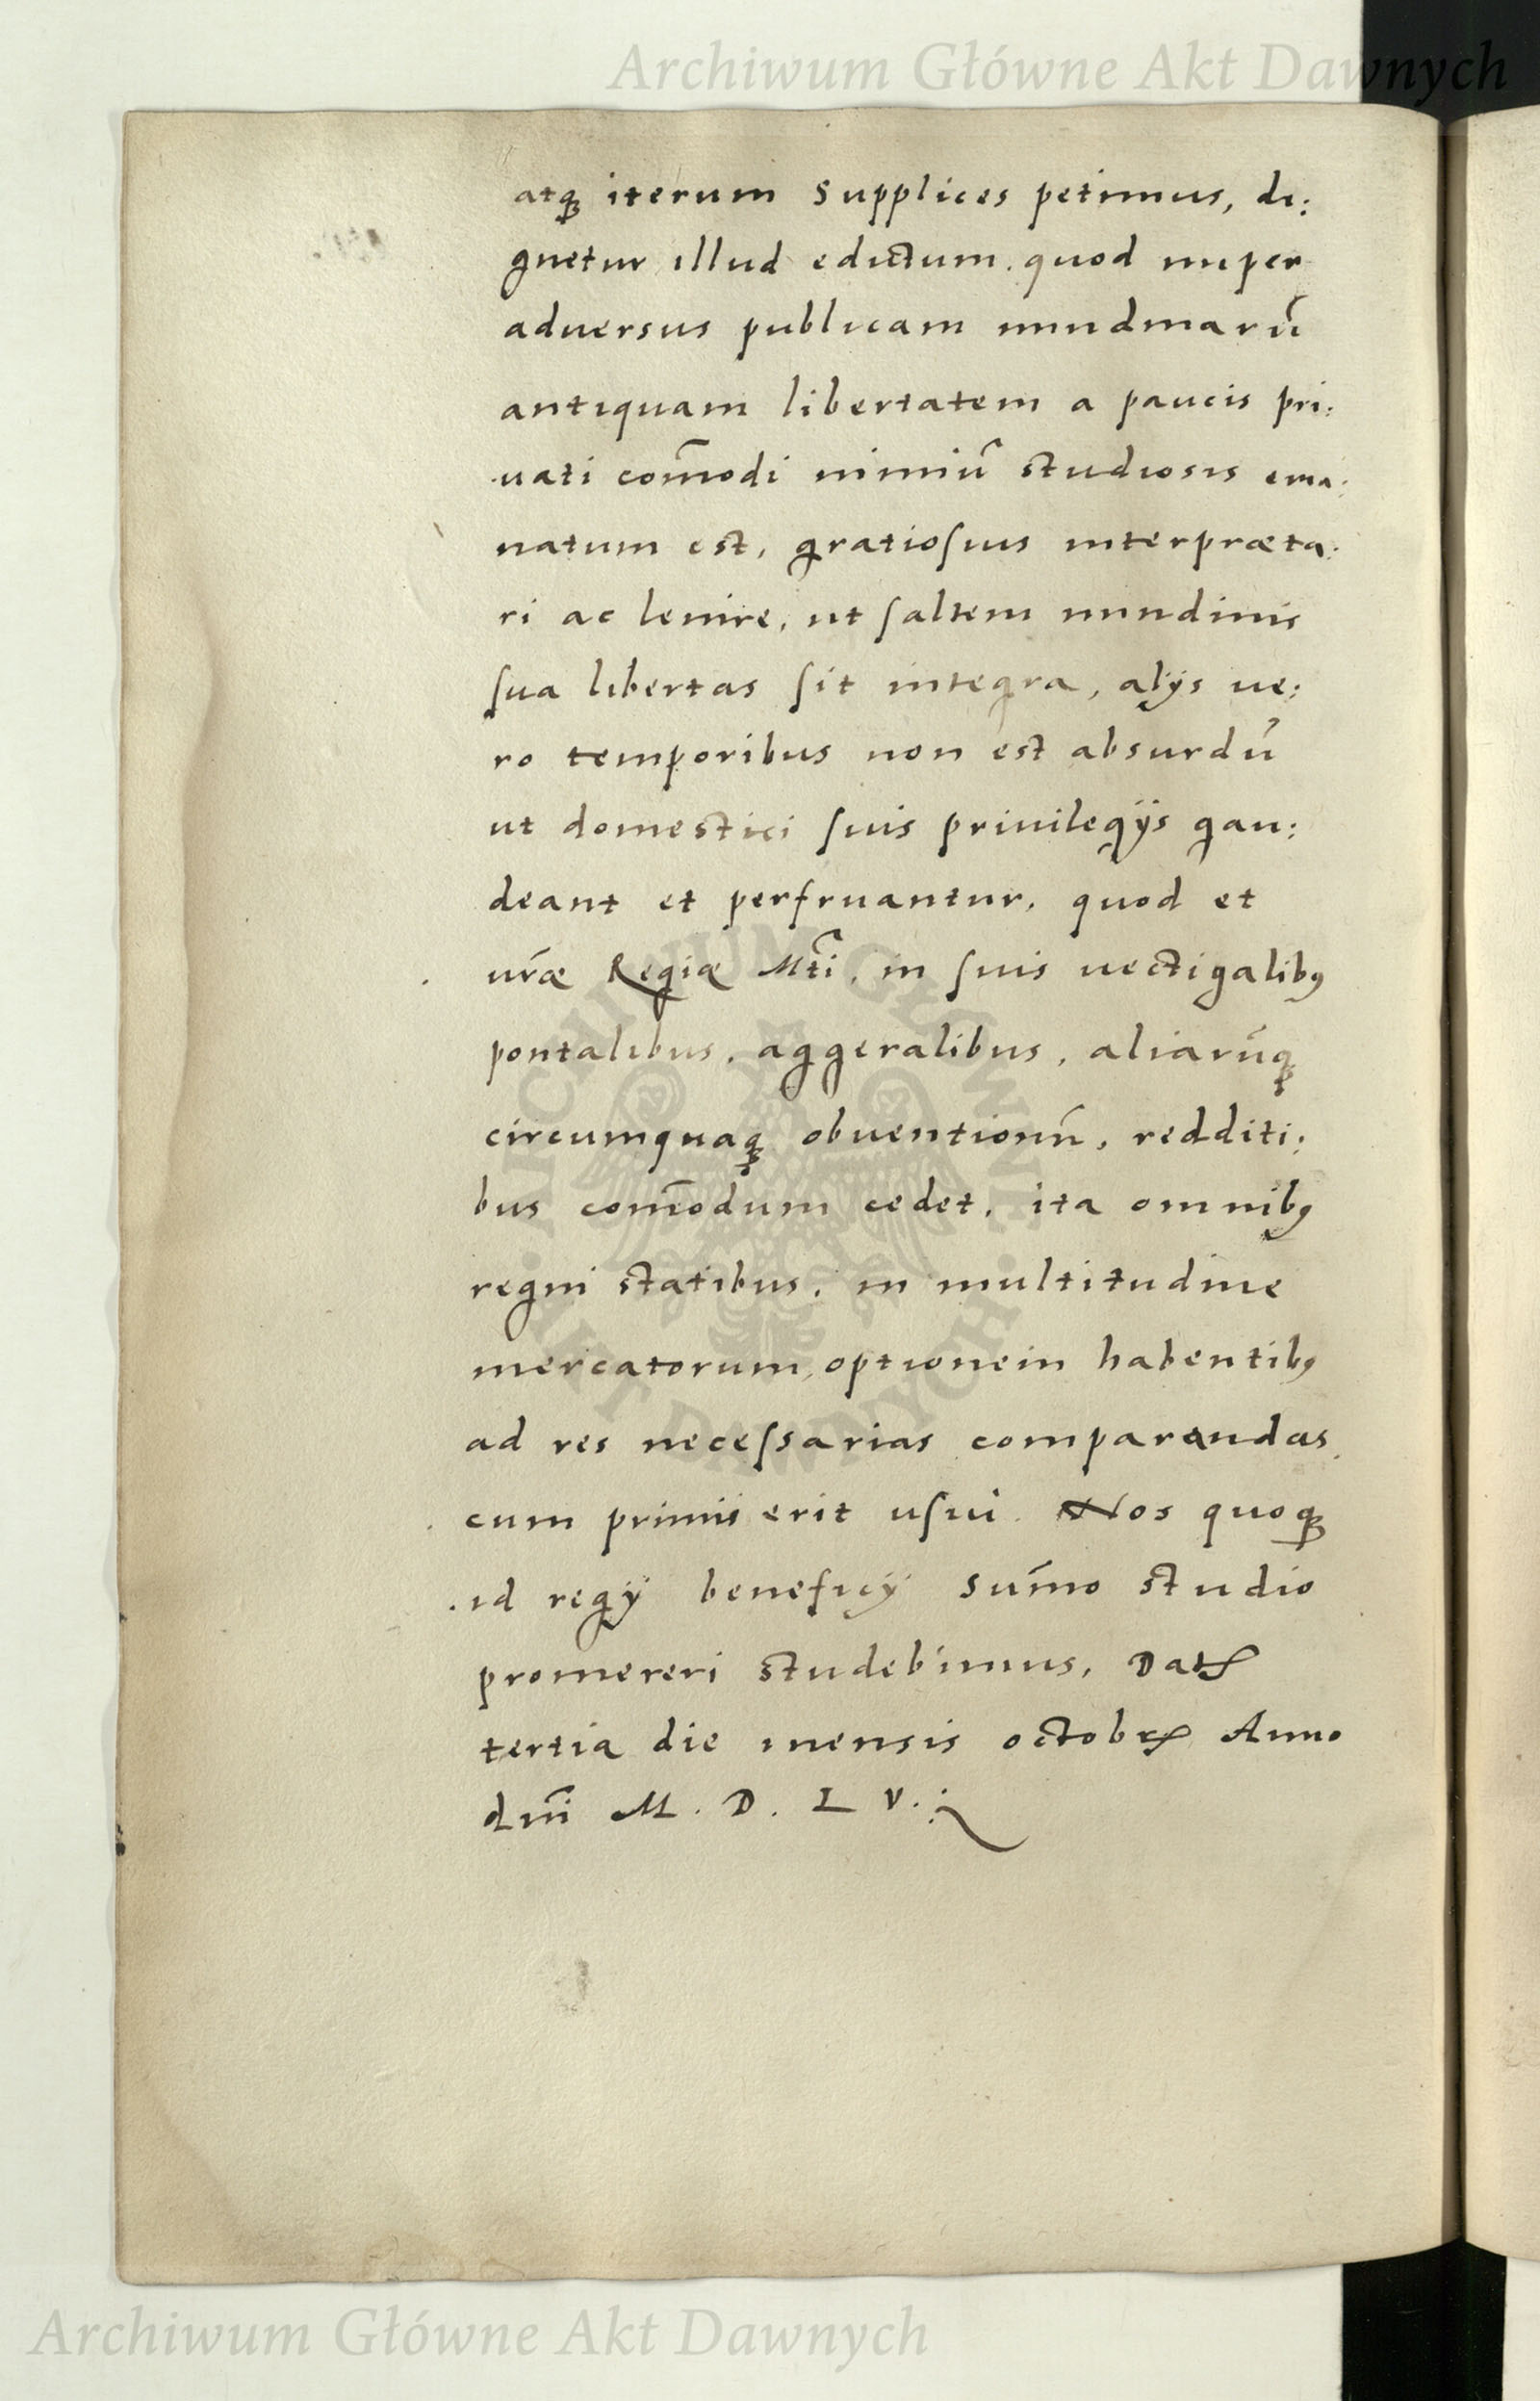 Archiwum Główne Akt Dawnych
atq̨ iterum Supplices petimus, di:
gnetur illud edictum. quod nuper
aduersus publicam nundinarũ
antiquam libertatem a paucis pri:
uati com̃odi nimiũ studiosis ema:
natum est, gratioſius interpræta:
ri ac lenire, ut ſaltem nundinis
ſua libertas ſit integra, alijs ue:
ro temporibus non est absurdũ
ut domestici ſuis priuilegijs gau:
deant et perfruantur, quod et
ur̃æ Regiæ Mti̇̃, in ſuis uectigalibꝰ
pontalibus, aggeralibus, aliarũq̨
circumquaq̨ obuentionũ, redditi:
bus com̃odum cedet, ita omnibꝰ
regni statibus, in multitudine
mercatorum optionem habentibꝰ
ad res neceſsarias comparandas
cum primis erit uſui. Nos quoq̨
id regij beneficij sum̃o studio
promereri studebimus, Datꝭ
tertia die mensis octobrꝭ Anno
dnĩ M. D. L V.
ARCHIWUM GŁÓWNE AKT DAWNYCH
Archiwum Główne Akt Dawnych